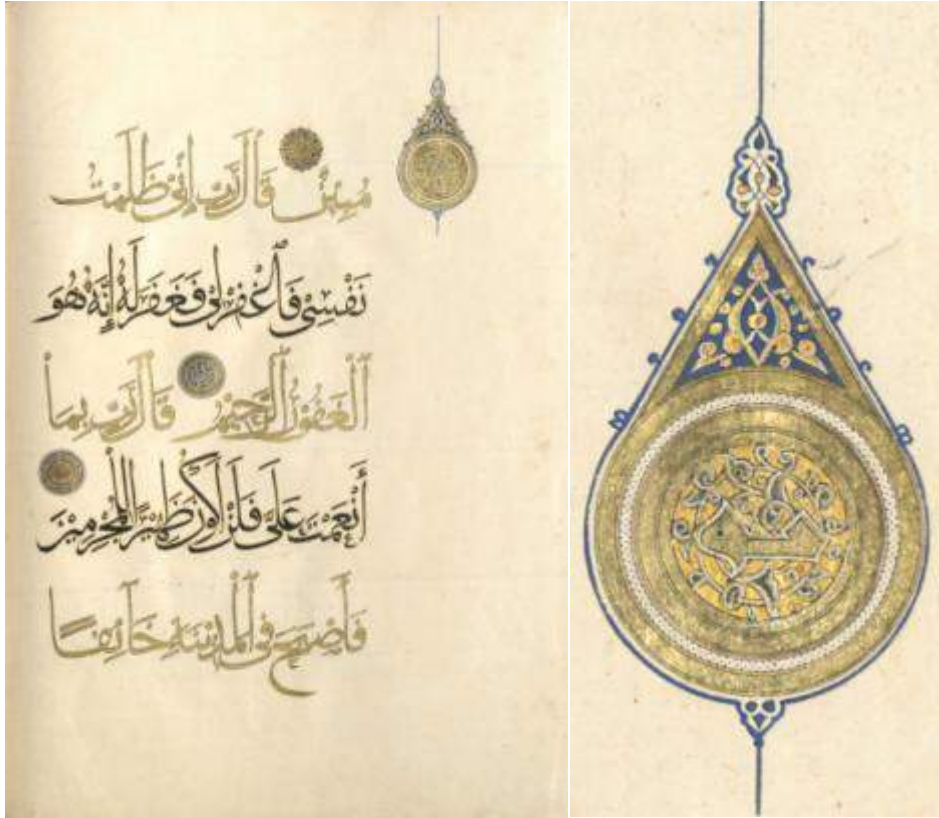 مُبِينٌ قَالَ رَبِّ إِنِّي ظَلَمْتُ
نَفْسِي فَاغْفِرْ لِي فَغَفَرَ لَهُ إِنَّهُ هُوَ
الْغَفُورُ الرَّحِيمُ قَالَ رَبِّ بِمَا
أَنْعَمْتَ عَلَيَّ فَلَنْ أَكُونَ ظَهِيرًا لِلْمُجْرِمِينَ
فَأَصْبَحَ فِي الْمَدِينَةِ خَائِفًا